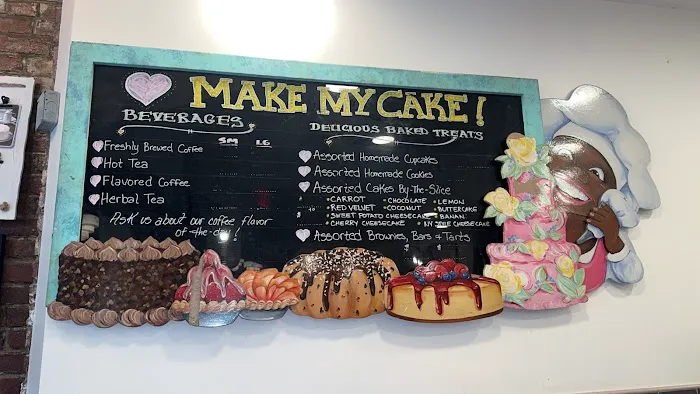 MAKE MY CAKE!
BEVERAGES
SM LG
Freshly Brewed Coffee
Hot Tea
Flavored Coffee
Herbal Tea
Ask us about our coffee flavor
of the day!
DELICIOUS BAKED TREATS
Assorted Homemade Cupcakes
Assorted Homemade Cookies
Assorted Cakes By-The-Slice
• CARROT • CHOCOLATE • LEMON
• RED VELVET • COCONUT • BUTTERCAKE
• SWEET POTATO CHEESECAKE • BANAN
• CHERRY CHEESECAKE • NY STYLE CHEESECAKE
Assorted Brownies, Bars & Tarts